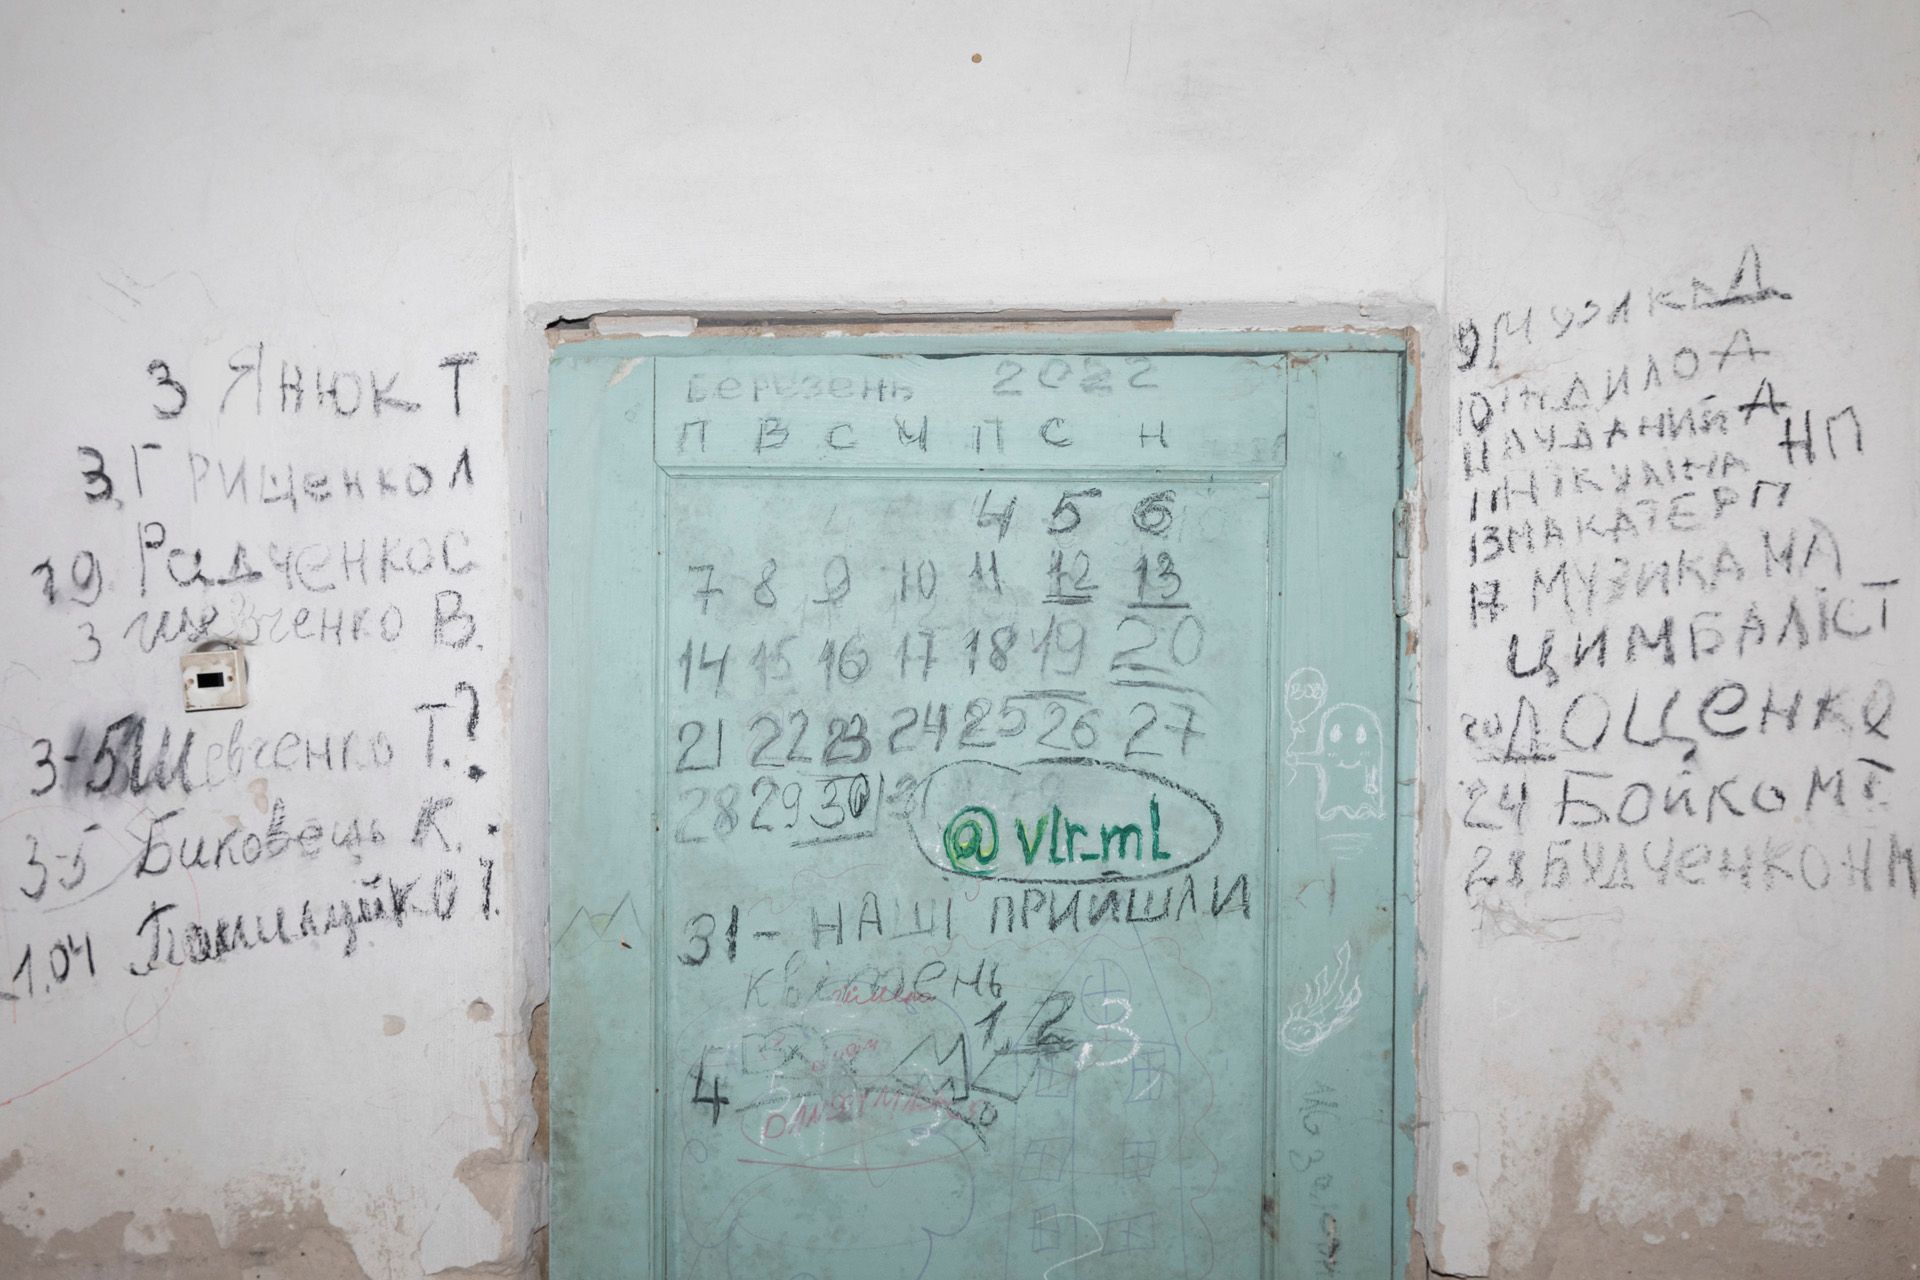 3 Янюк Т
3. Грищенко Л
19. Радченко С
3 Шевченко В.
3-5 Шевченко Т.?
3-5 Биковець К.
1.04
Березень 2022
П В С Ч П С Н
4 5 6
7 8 9 10 11 12 13
14 15 16 17 18 19 20
21 22 23 24 25 26 27
28 29 30 31
@vlr_ml
31 - НАШІ ПРИЙШЛИ
квітень
1, 2, 3
4
9 Музика Д
10 ІНДИЛО А
11 ЧУДАНИЙ А
11 НІКУЛІНА НП
13 МАКАТЕР П
17 МУЗИКА МА
ЦИМБАЛІСТ
20 ДОЩЕНКО
24 БОЙКО М Т.
28 БУДЧЕНКО Н М